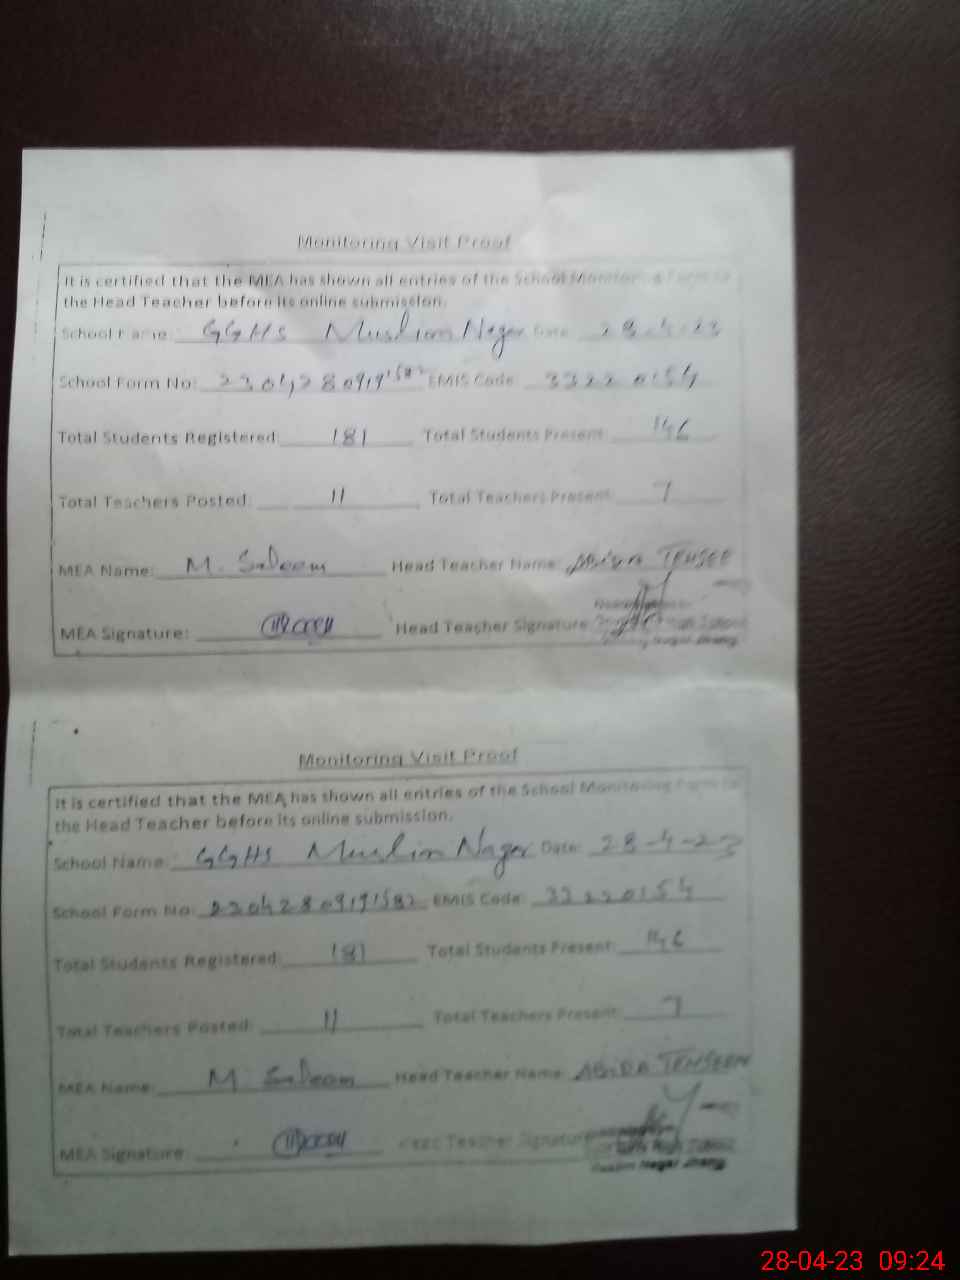 Monitoring Visit Proof
It is certified that the MEA has shown all entries of the School Monitoring Form to
the Head Teacher before its online submission.
School Name: GGHS Muslim Nagar Date: 28-4-23
School Form No: 23042809191582 EMIS Code: 33220154
Total Students Registered: 181 Total Students Present: 146
Total Teachers Posted: 11 Total Teachers Present: 7
MEA Name: M. Saleem Head Teacher Name: ABIDA
MEA Signature: Head Teacher Signature:
High School
Nagar Jhang
Monitoring Visit Proof
It is certified that the MEA has shown all entries of the School Monitoring Form to
the Head Teacher before its online submission.
School Name: GGHS Muslim Nagar Date: 28-4-23
School Form No: 23042809191582 EMIS Code: 33220154
Total Students Registered: 181 Total Students Present: 146
Total Teachers Posted: 11 Total Teachers Present: 7
MEA Name: M Saleem Head Teacher Name: ABIDA TEHSEEN
MEA Signature: Head Teacher Signature:
Girls High School
Muslim Nagar Jhang
28-04-23 09:24